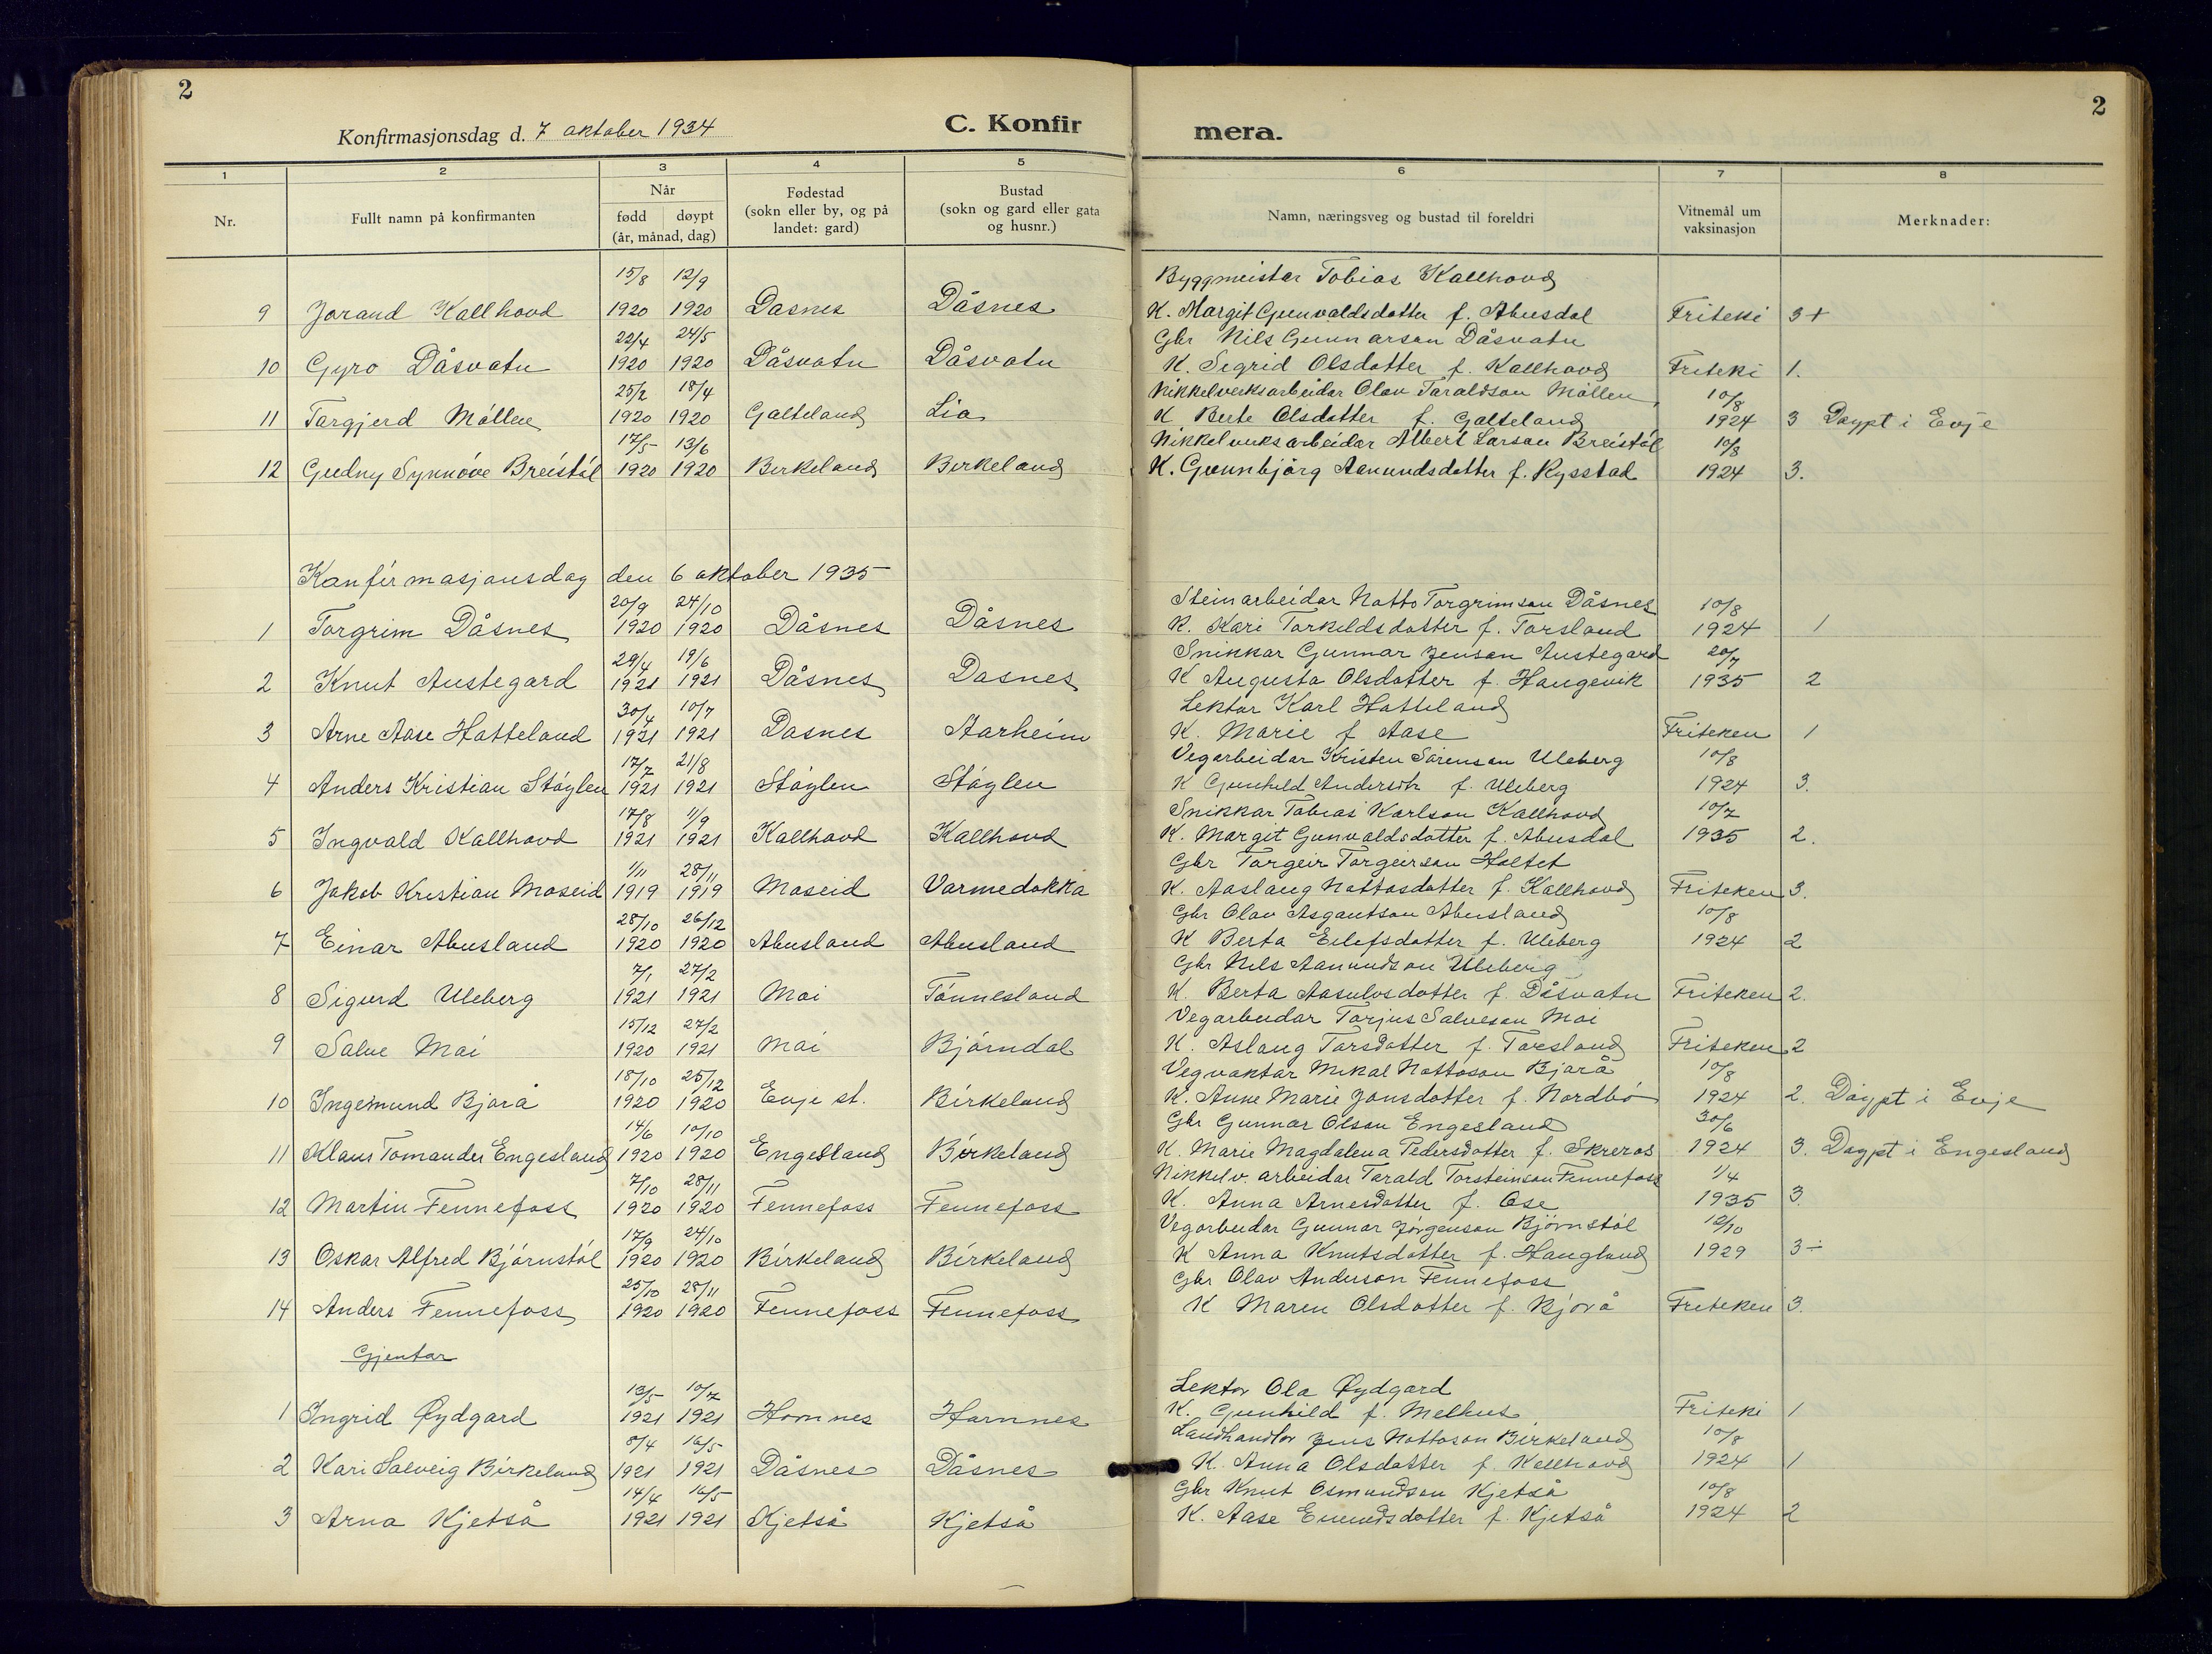 2
Konfirmasjonsdag d. 7 oktober 1934
C. Konfir
mera.
2
1 2 3 4 5 6 7 8
Nr.
Fullt namn på konfirmanten
Når
fødd døypt
(år, månad, dag)
Fødestad
(sokn eller by, og på
landet: gard)
Bustad
(sokn og gard eller gata
og husnr.)
Namn, næringsveg og bustad til foreldri
Vitnemål um
vaksinasjon
Merknader:
15/8 12/9 Byggmeister Tobias Kallhovd
9 Jorand Kallhovd 1920 1920 Dasnes Dåsnes K. Margit Gunvaldsdatter f. Abusdal Friteki 3+
22/4 24/5 Gbr Nils Gunnarson Dåsvatn
10 Gyro Dåsvatn 1920 1920 Dåsvatn Dåsvatn K. Sigrid Olsdotter f. Kallhovd Friteki 1.
25/2 18/4 Nikkelverksarbeidar Olav Taraldson Möllen 10/8
11 Targjerd Möllen 1920 1920 Galteland Lia K Berte Olsdotter f. Galteland 1924 3 Døypt i Evje
17/5 13/6 Nikkelverksarbeidar Albert Larson Breistöl 10/8
12 Gudny Synnöve Breistöl 1920 1920 Birkeland Birkeland K. Gunnbjörg Aamundsdotter f. Rysstad 1924 3.
Konfirmasjonsdag den 6 oktober 1935
20/9 24/10 Steinarbeidar Notto Torgrimson Dåsnes 10/8
1 Torgrim Dåsnes 1920 1920 Dåsnes Dåsnes K. Kari Torkildsdotter f. Torsland 1924 1
29/4 19/6 Snikkar Gunnar Jenson Austegard 20/7
2 Knut Austegard 1921 1921 Dåsnes Dasnes K Augusta Olsdotter f. Haugevik 1935 2
30/4 10/7 Lektor Karl Hatteland
3 Arne Aase Hatteland 1921 1921 Dasnes Aarheim K. Marie f Aase Friteken 1
17/7 21/8 Vegarbeidar Kristen Sörenson Uleberg 10/8
4 Anders Kristian Stöylen 1921 1921 Stöylen Stöylen K Gunhild Andersdtr f. Uleberg 1924 3.
17/8 11/9 Snikkar Tobias Karlson Kallhovd 10/7
5 Ingvald Kallhovd 1921 1921 Kallhovd Kallhovd K. Margit Gunvaldsdotter f. Abusdal 1935 2.
1/11 28/11 Gbr Torgeir Torgeirson Holtet
6 Jakob Kristian Moseid 1919 1919 Moseid Varmedokka K. Aaslaug Nottosdotter f. Kallhovd Friteken 3.
28/10 26/12 Gbr Olav Asgautson Abusland 10/8
7 Einar Abusland 1920 1920 Abusland Abusland K Berta Eilefsdotter f. Uleberg 1924 2
7/1 27/2 Gbr Nils Aanundson Uleberg
8 Sigurd Uleberg 1921 1921 Moi Tönnesland K. Berta Aasulvsdotter f. Dåsvatn Friteken 2.
15/12 27/2 Vegarbeidar Torjus Salveson Moi
9 Salve Moi 1920 1921 Moi Björndal K. Aslaug Torsdotter f. Torsland Friteken 2
18/10 25/12 Vegvaktar Mikal Nottoson Bjorå 10/8
10 Ingemund Bjorå 1920 1920 Evje st. Birkeland K. Anne Marie Jonsdotter f. Nordbö 1924 2. Döypt i Evje
14/6 10/10 Gbr Gunnar Olson Engesland 30/6
11 Klaus Tomander Engesland 1920 1920 Engesland Birkeland K. Marie Magdalena Pedersdotter f. Skreros 1924 3. Døypt i Engesland
7/10 28/11 Nikkelv. arbeidar Tarald Torsteinson Fennefoss 1/4
12 Martin Fennefoss 1920 1920 Fennefoss Fennefoss K. Anna Arnesdotter f. Ose 1935 3.
17/9 24/10 Vegarbeidar Gunnar Jörgenson Björnstöl 12/10
13 Oskar Alfred Björnstöl 1920 1920 Birkeland Birkeland K Anna Knutsdotter f. Haugland 1929 3÷
25/10 28/11 Gbr Olav Anderson Fennefoss
14 Anders Fennefoss 1920 1920 Fennefoss Fennefoss K Maren Olsdotter f. Bjorå Friteken 3.
Gjentar
13/5 10/7 Lektor Ola Øydgard
1 Ingrid Øydgard 1921 1921 Hornnes Hornnes K. Gunhild f. Melhus Friteki 1
8/4 16/5 Landhandlar Jens Nottoson Birkeland 10/8
2 Kari Solveig Birkeland 1921 1921 Dåsnes Dåsnes K. Anna Olsdotter f. Kallhovd 1924 1
14/4 16/5 Gbr Knut Osmundson Kjetså 10/8
3 Arna Kjetså 1921 1921 Kjetså Kjetså K. Aase Emundsdotter f. Kjetså 1924 2